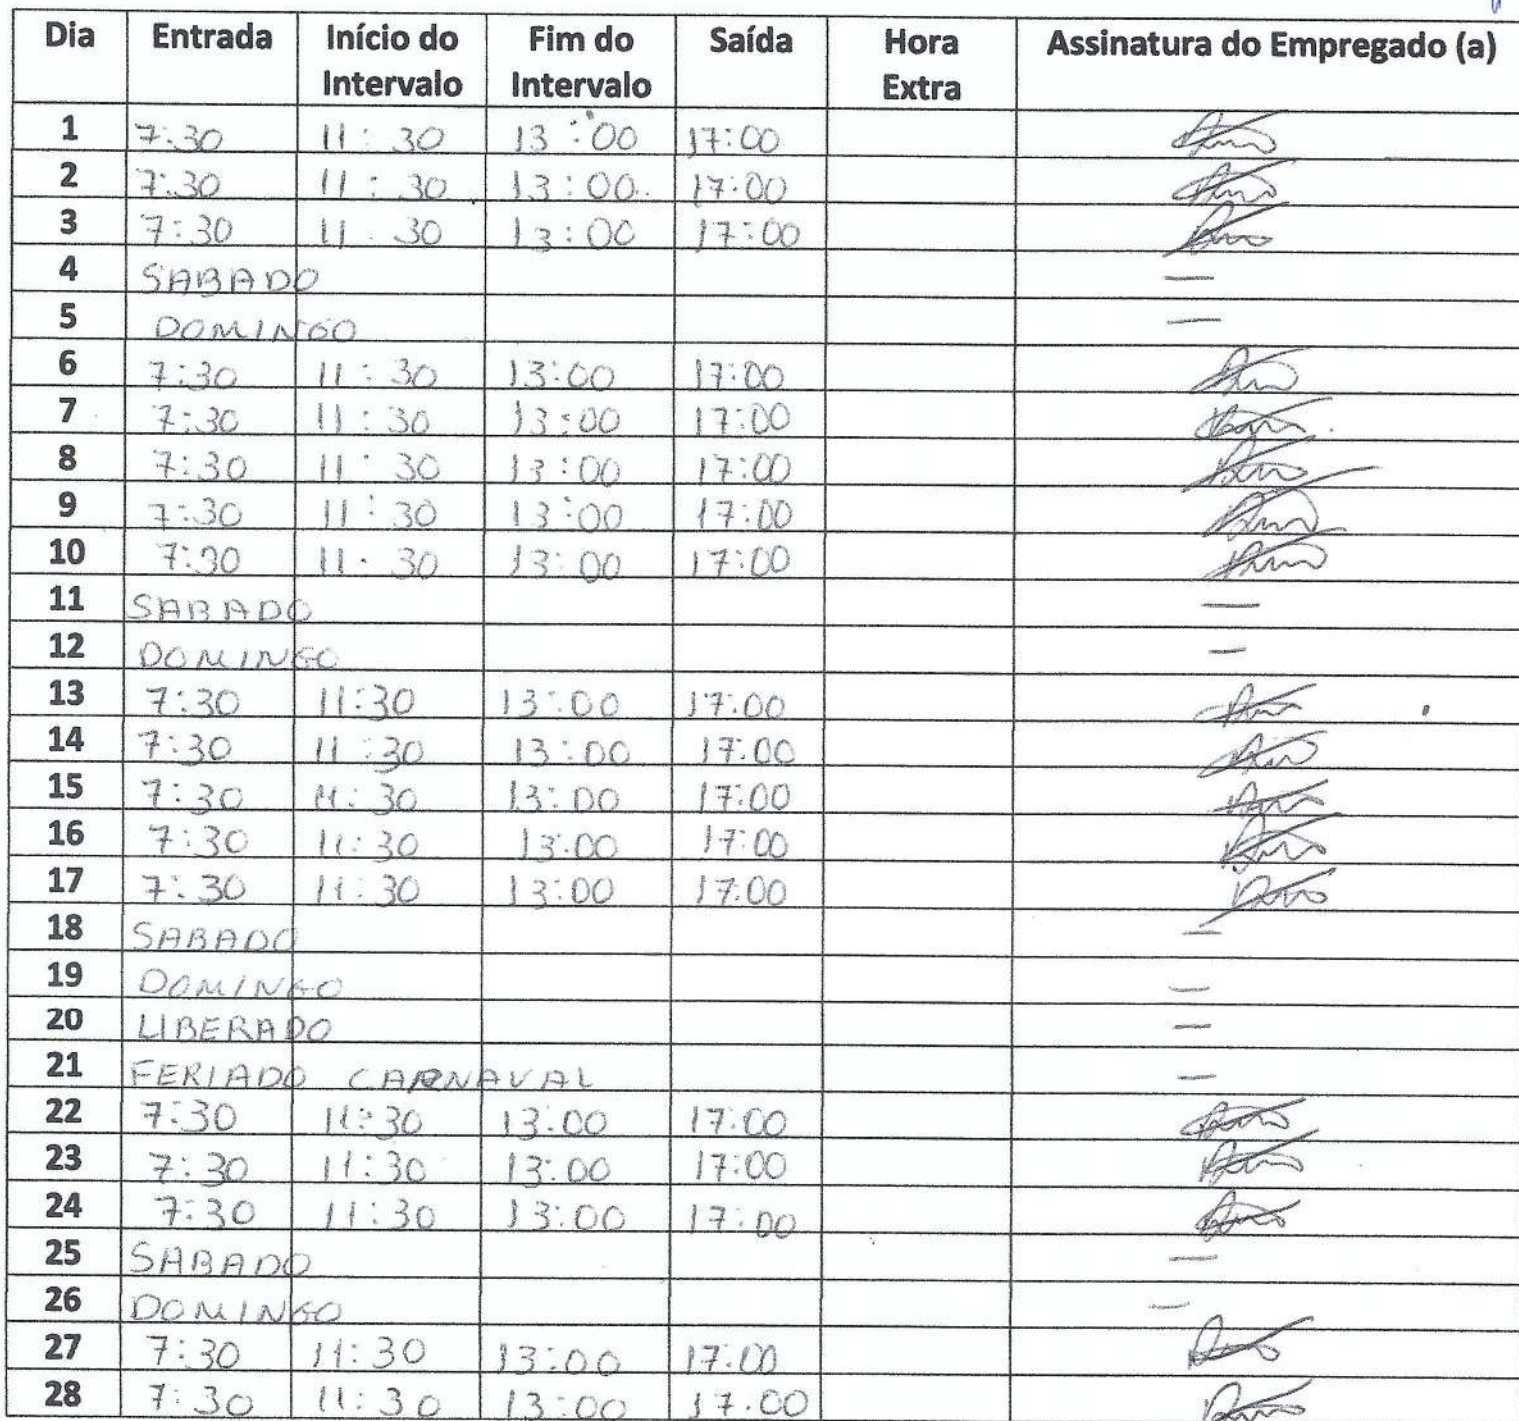 Dia Entrada Início do Intervalo Fim do Intervalo Saída Hora Extra Assinatura do Empregado (a)
1 7:30 11:30 13:00 17:00
2 7:30 11:30 13:00 17:00
3 7:30 11.30 13:00 17:00
4 SABADO —
5 DOMINGO —
6 7:30 11:30 13:00 17:00
7 7:30 11:30 13:00 17:00
8 7:30 11:30 13:00 17:00
9 7:30 11:30 13:00 17:00
10 7:30 11.30 13:00 17:00
11 SABADO —
12 DOMINGO —
13 7:30 11:30 13:00 17:00
14 7:30 11:30 13:00 17:00
15 7:30 11:30 13:00 17:00
16 7:30 11:30 13:00 17:00
17 7:30 11:30 13:00 17:00
18 SABADO —
19 DOMINGO —
20 LIBERADO —
21 FERIADO CARNAVAL —
22 7:30 11:30 13:00 17:00
23 7:30 11:30 13:00 17:00
24 7:30 11:30 13:00 17:00
25 SABADO —
26 DOMINGO —
27 7:30 11:30 13:00 17:00
28 7:30 11:30 13:00 17.00